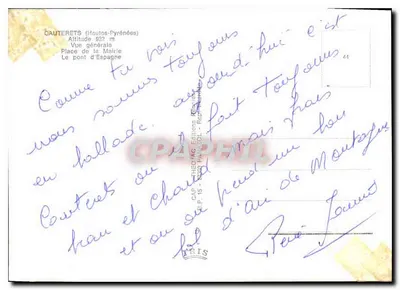 CAUTERETS (Hautes-Pyrénées)
Altitude 937 m
Vue générale
Place de la Mairie
Le pont d'Espagne
Comme tu vois
nous sommes toujours
en ballade. aujourd'hui c'est
Cauterets ou il fait toujours
beau et Chaud mais frais
et on en prend un bon
bol d'air de Montagne
René
CPAPHIL
IRIS